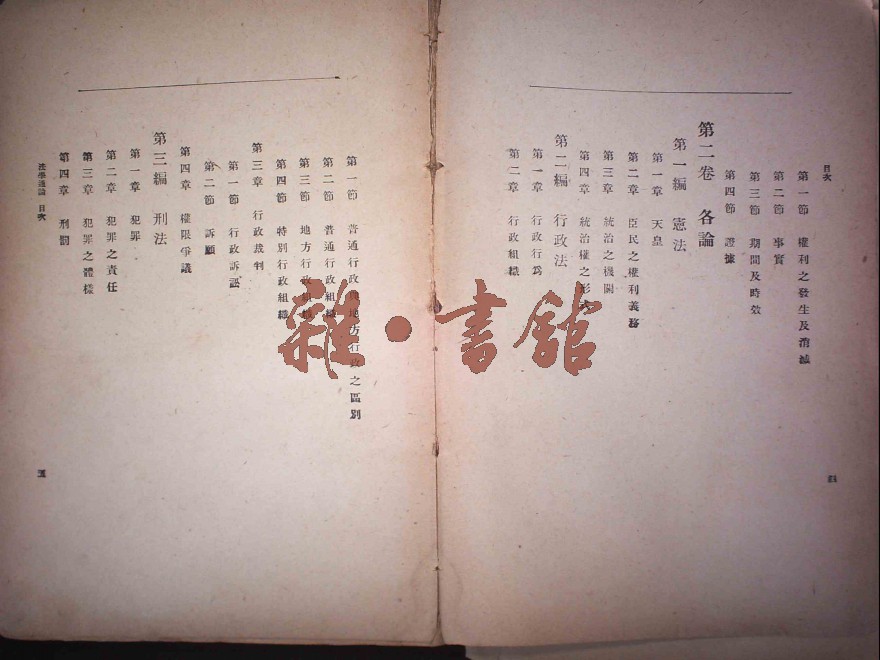 目次
第一節 權利之發生及消滅
第二節 事實
第三節 期間及時效
第四節 證據
第二卷 各論
第一編 憲法
第一章 天皇
第二章 臣民之權利義務
第三章 統治之機關
第四章 統治權之形式
第二編 行政法
第一章 行政行爲
第二章 行政組織
四
第一節 普通行政與地方行政之區別
第二節 普通行政組織
第三節 地方行政組織
第四節 特別行政組織
第三章 行政裁判
第一節 行政訴訟
第二節 訴願
第四章 權限爭議
第三編 刑法
第一章 犯罪
第二章 犯罪之責任
第三章 犯罪之體樣
第四章 刑罰
法學通論 目次
五
雜·書館